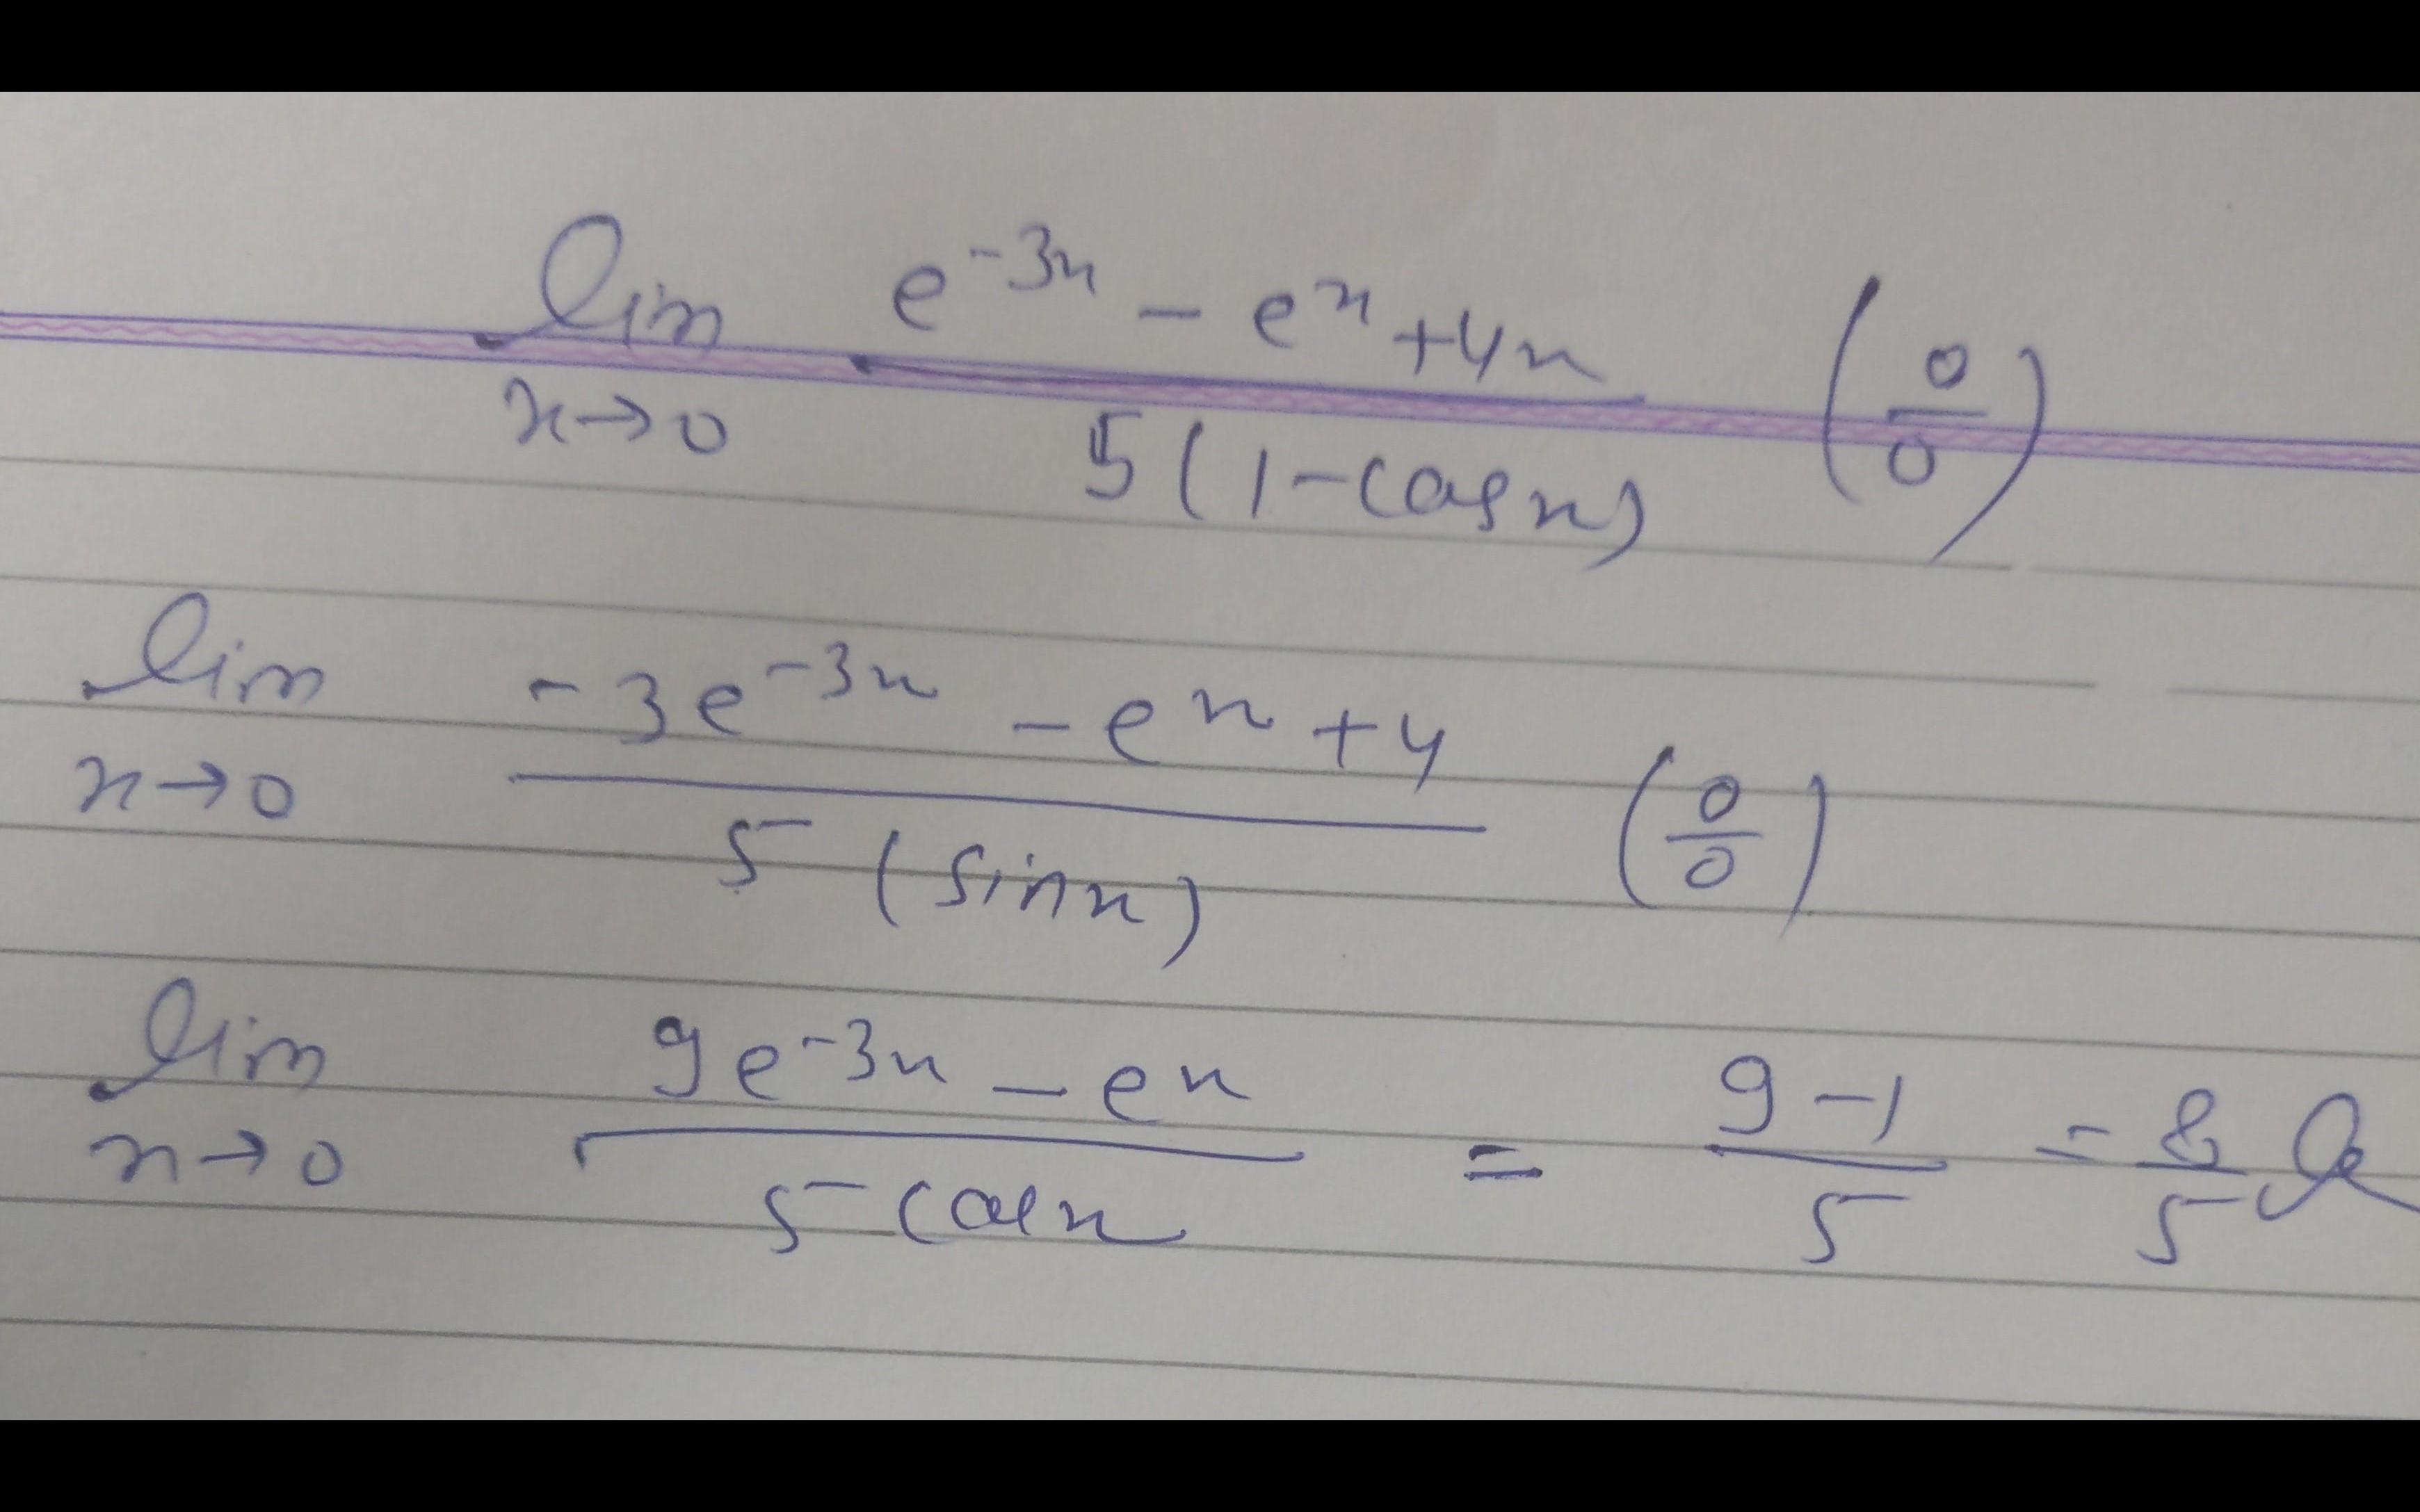 lim e^{-3x} - e^x + 4x / 5(1-cosx) (0/0)
x→0
lim -3e^{-3x} - e^x + 4 / 5(sinx) (0/0)
x→0
lim 9e^{-3x} - e^x / 5cosx = 9-1/5 = 8/5
x→0